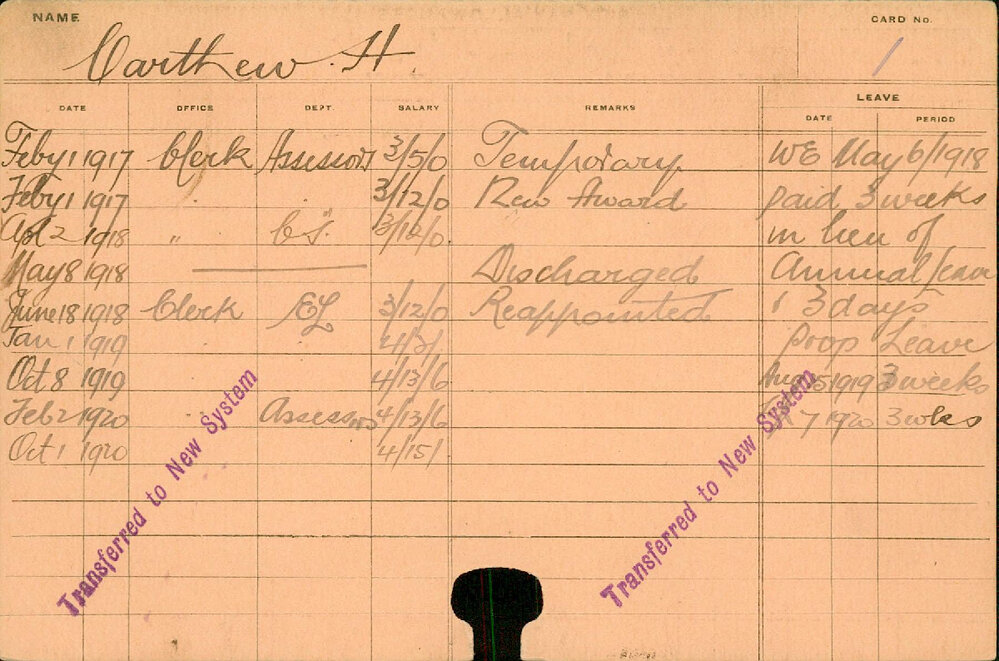 NAME
CARD No.
Carthew. H.
1
LEAVE
DATE OFFICE DEPT. SALARY REMARKS DATE PERIOD
Feby 1 1917 Clerk Assessors 3/5/0 Temporary. WE May 6/1918
Feby 1 1917 " 3/12/0 New Award paid 3 weeks
Apl 2 1918 " C.T. 3/12/0. in lieu of
May 8 1918 Discharged Annual Leave
June 18 1918 Clerk EL 3/12/0 Reappointed 3 days
Jan 1 1919 4/3/ Prop Leave
Oct 8 1919 4/13/6 1919 3 weeks
Feb 2 1920 Assessors 4/13/6 7 1920 3 wks
Oct 1 1920 4/15/
Transferred to New System
Transferred to New System